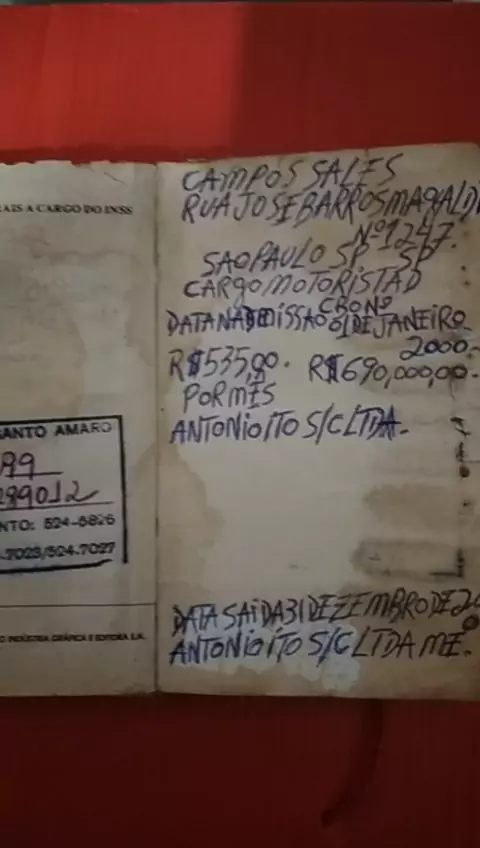 RAIS A CARGO DO INSS
SANTO AMARO
99
289012
NTO: 524-5826
.7023/524.7027
O INDÚSTRIA GRÁFICA E EDITORA S.A.
CAMPOS SALES
RUA JOSE BARROS MAGALDI
Nº 1247.
SAO PAULO SP SP
CARGO MOTORISTA D
CBO Nº
DATA NA ADMISSAO 01 DE JANEIRO
2000.
R$535,80. R$690,000,00.
POR MÊS
ANTONIO ITO S/C LTDA.
DATA SAIDA 31 DEZEMBRO DE 20
ANTONIO ITO S/C LTDA ME.